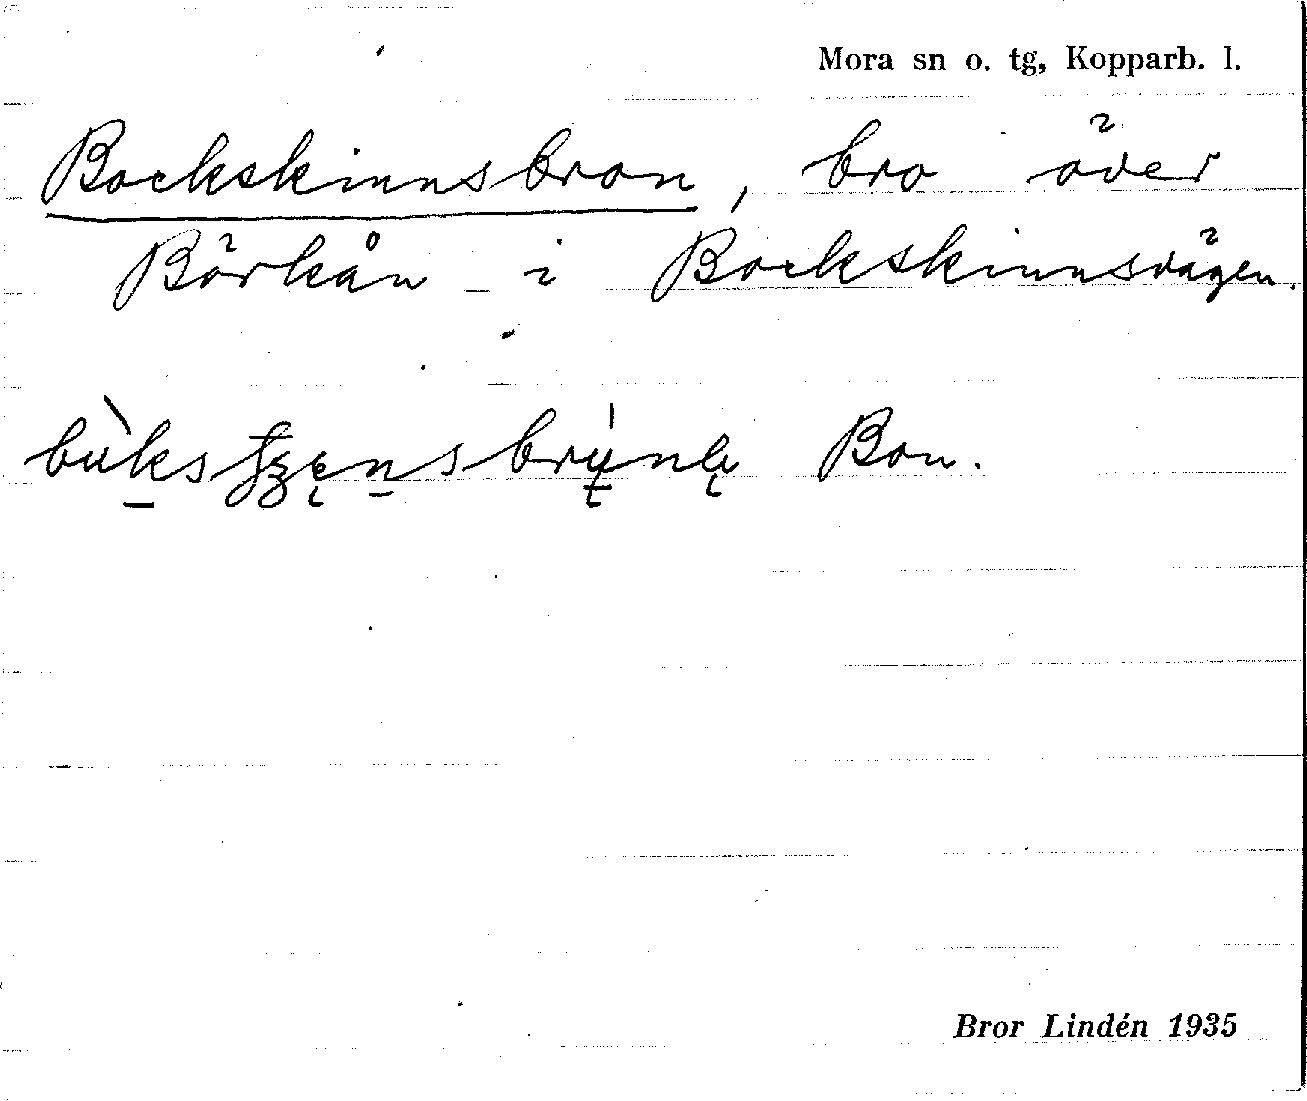 Mora sn o. tg, Kopparb. l.
Bockskinnsbron, bro över
Börkån i Bockskinnsvägen.
Bon.
Bror Lindén 1935